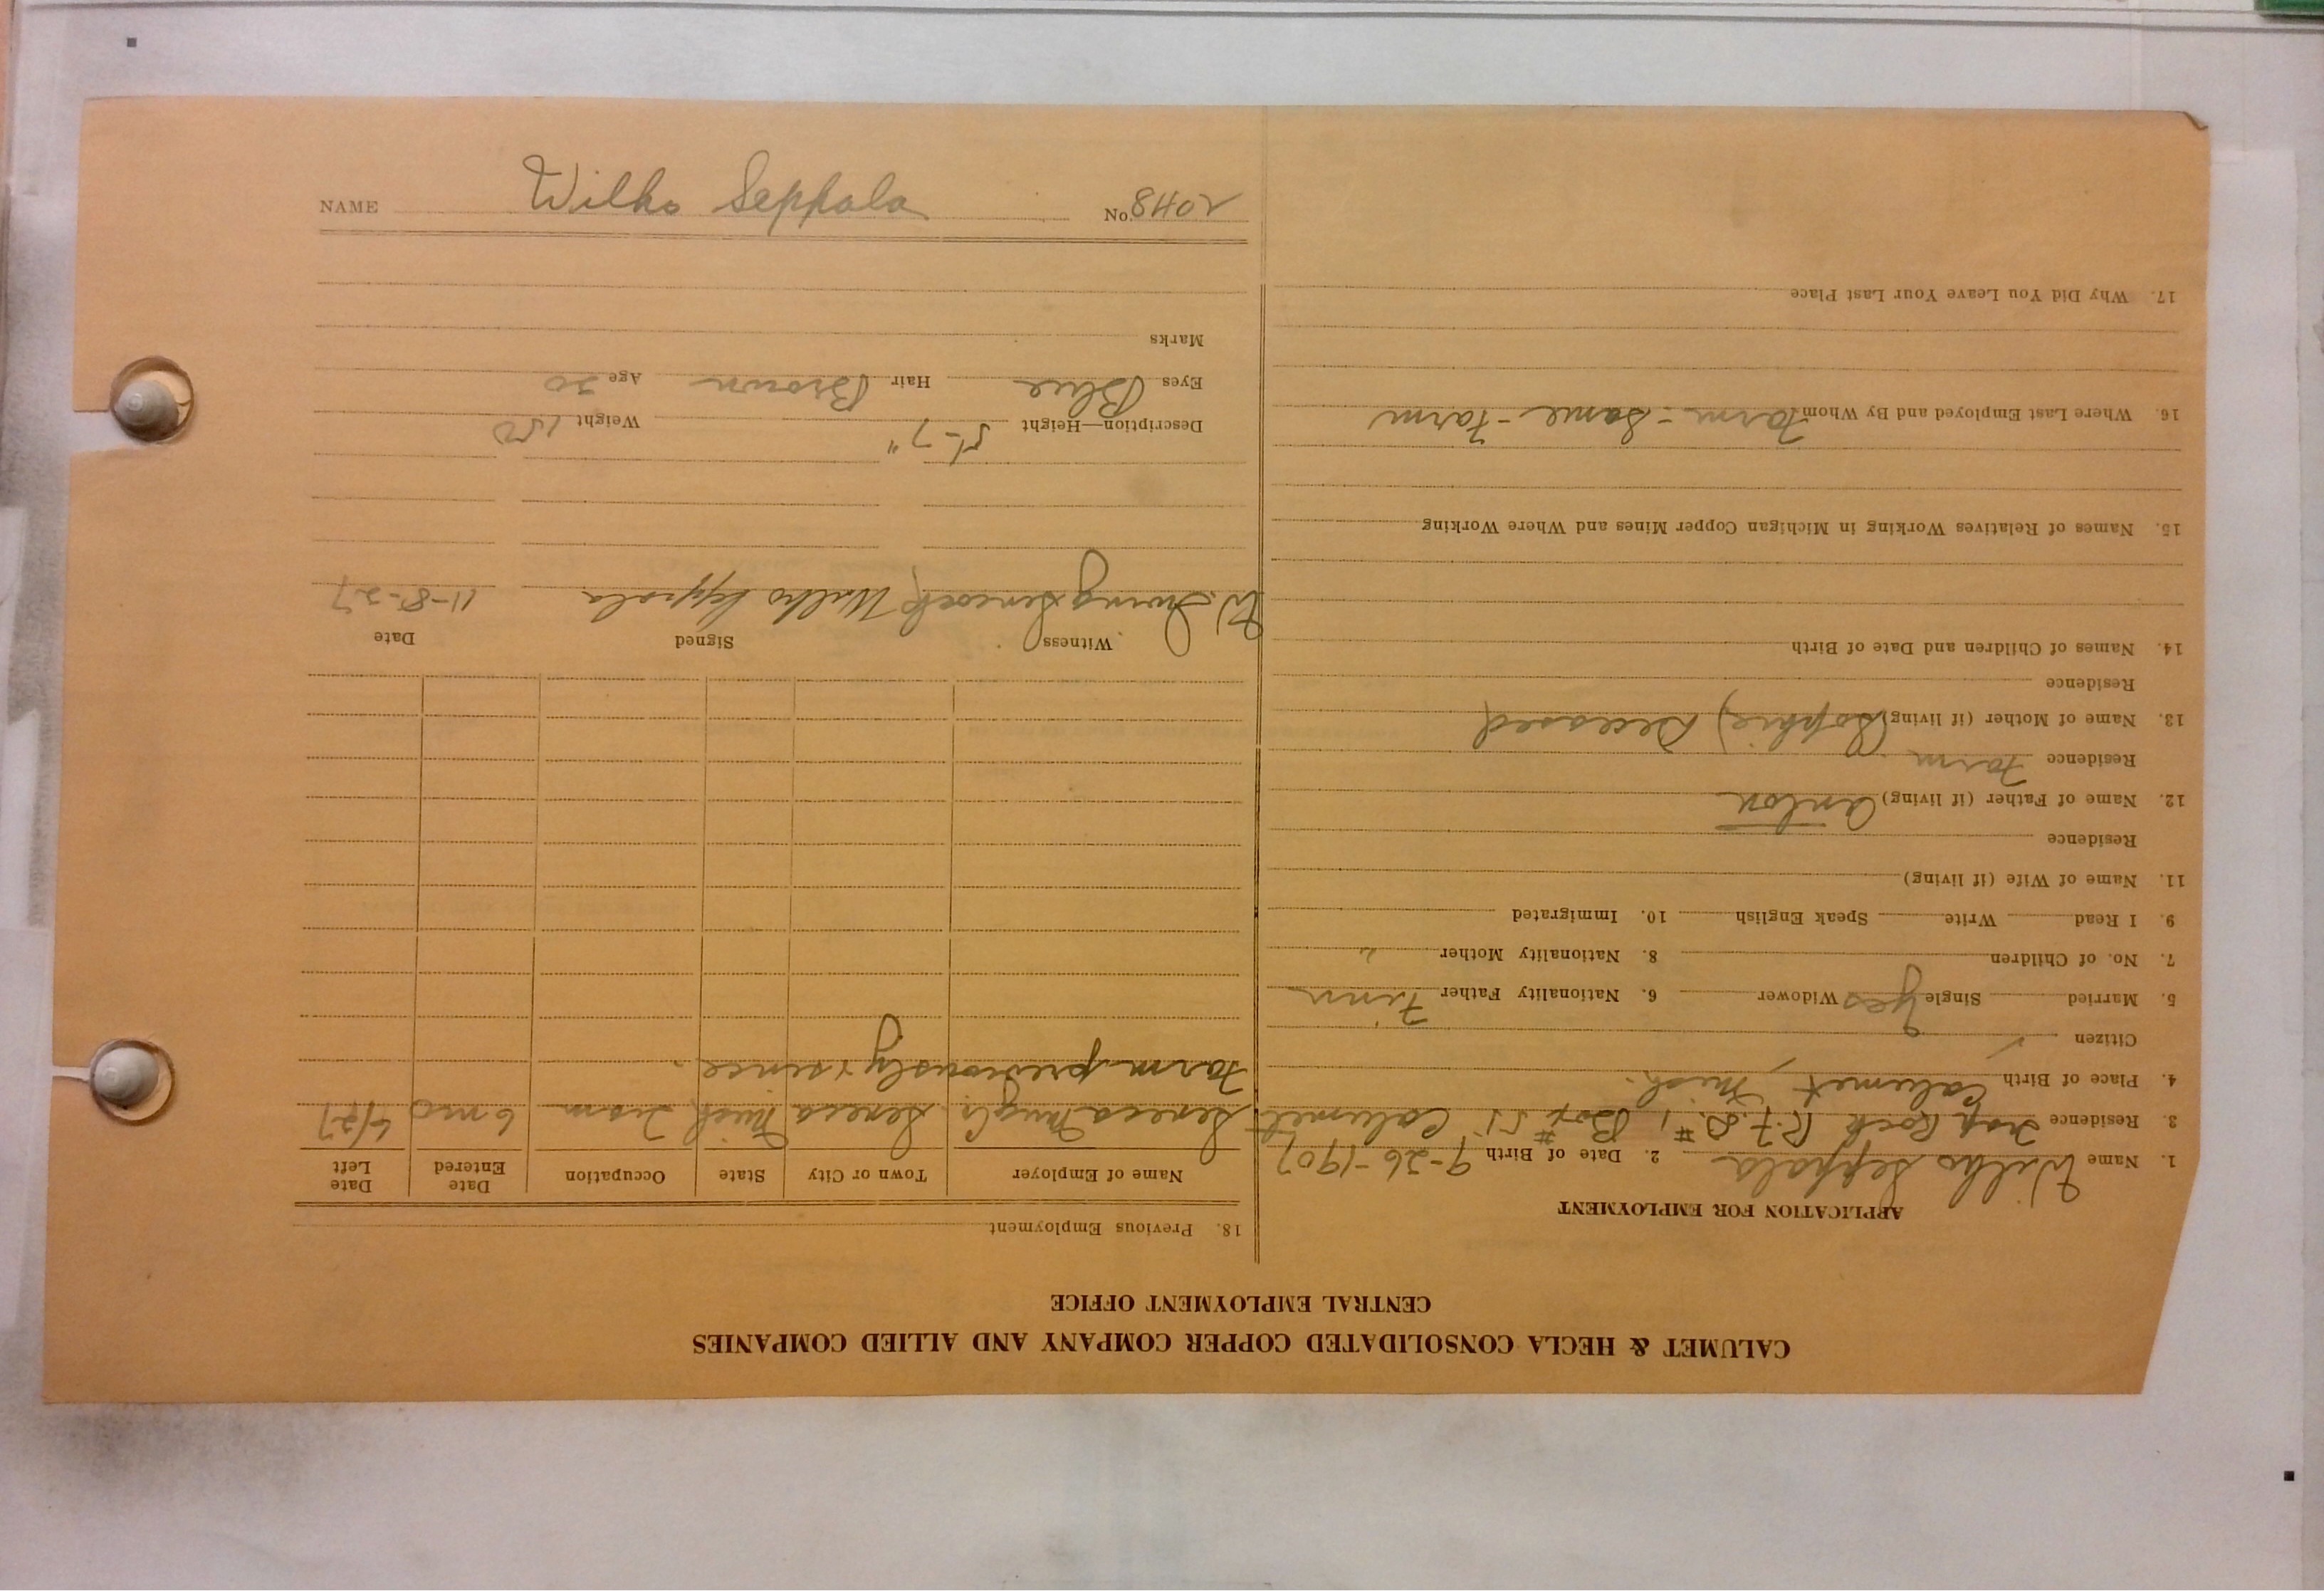 CALUMET & HECLA CONSOLIDATED COPPER COMPANY AND ALLIED COMPANIES
CENTRAL EMPLOYMENT OFFICE
APPLICATION FOR EMPLOYMENT
1. Name Wilho Seppala 2. Date of Birth 9-26-1907
3. Residence Trap Rock R.F.D. #1 Box #51 Calumet
4. Place of Birth Calumet, Mich.
Citizen
5. Married Single Yes Widower 6. Nationality Father Finn
7. No. of Children 8. Nationality Mother "
9. I Read Write Speak English 10. Immigrated
11. Name of Wife (if living)
Residence
12. Name of Father (if living) Anton
Residence Farm
13. Name of Mother (if living) (Sophie) Deceased
Residence
14. Names of Children and Date of Birth
15. Names of Relatives Working in Michigan Copper Mines and Where Working
16. Where Last Employed and By Whom Farm - Same - Farm
17. Why Did You Leave Your Last Place
18. Previous Employment
Name of Employer Town or City State Occupation Date Entered Date Left
Seneca Mng Co. Seneca Mich Tram 6 mo 5/27
Farm previously & since.
Witness Signed Date
W. Irving Sincock Wilho Seppala 11-8-27
Description—Height 5'-7" Weight 150
Eyes Blue Hair Brown Age 20
Marks
NAME Wilho Seppala No. 8402